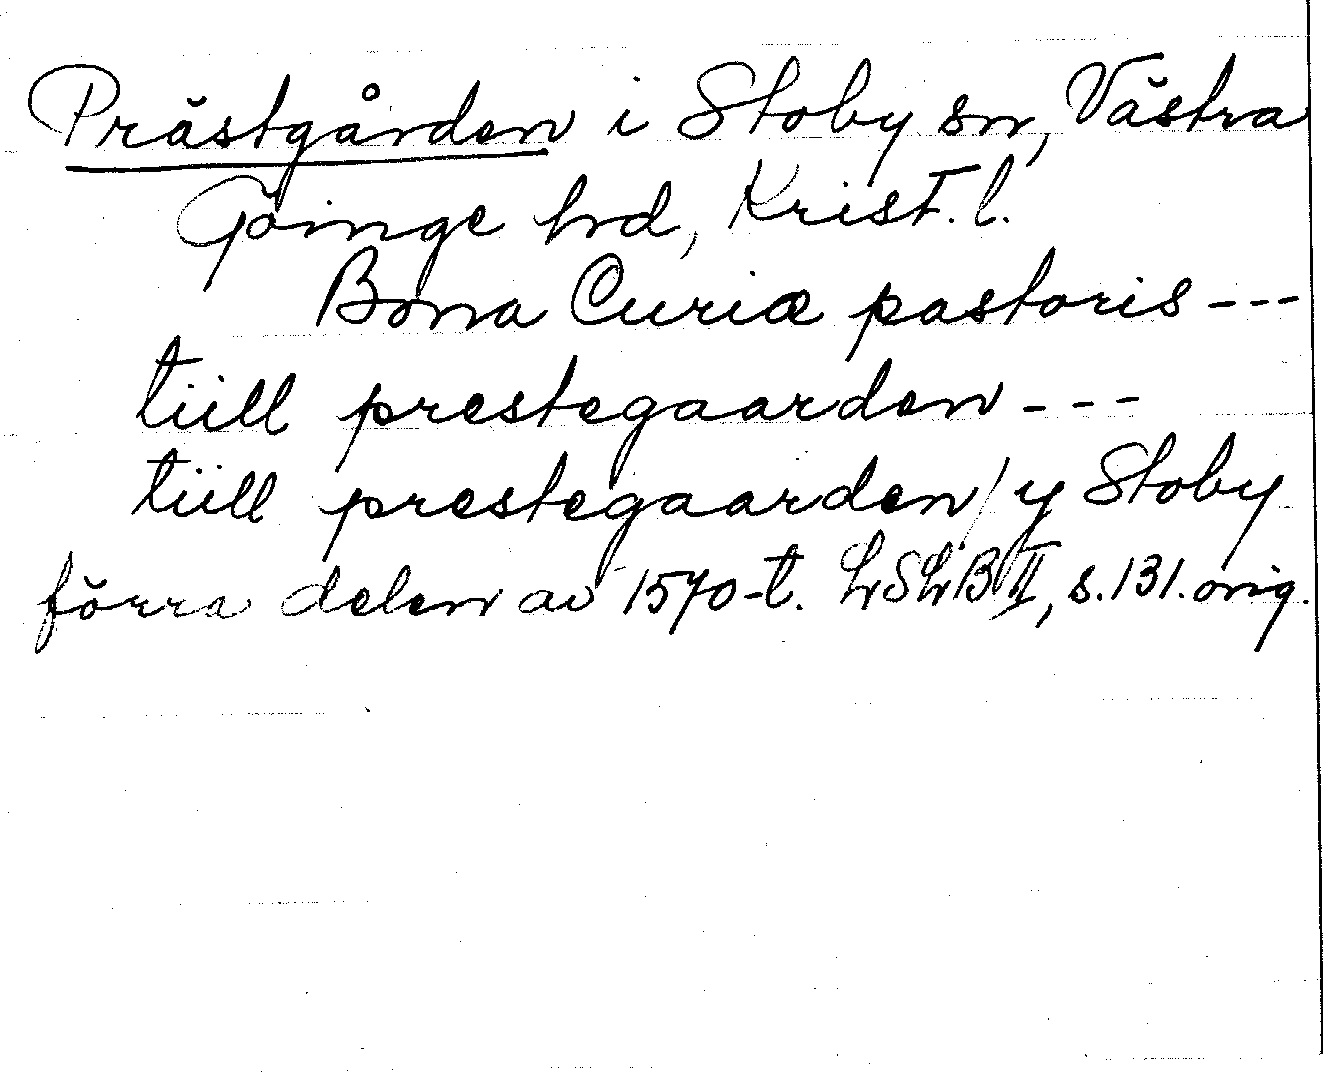 Prästgården i Stoby sn, Västra
Göinge hd, Krist. l.
Bona Curiæ pastoris ---
tiill prestegaarden ---
tiill prestegaarden / y Stoby
förra delen av 1570-t. LSLB II, s. 131. orig.